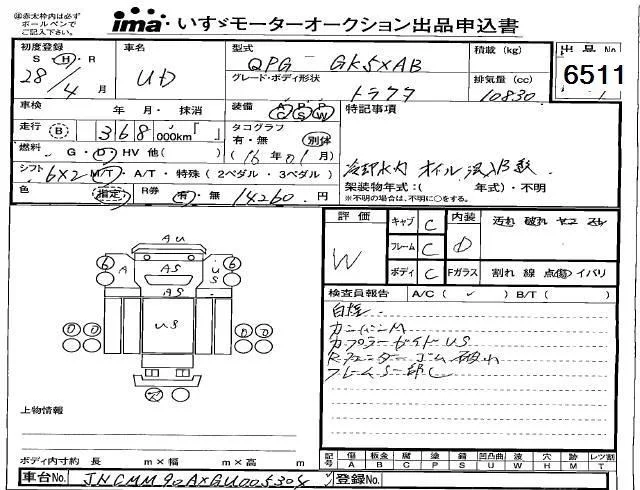 ㊟赤太枠内は必ず
ボールペンで
ご記入下さい。
ima いすゞモーターオークション出品申込書
初度登録 車名 型式 積載 (kg) 出品No.
S H・R QPG - GK5XAB
28/4 月 UD グレード・ボディ形状 排気量 (cc) 6511
トラクタ 10830
車検 年・月・抹消 装備 A/C P/S P/W 特記事項
走行 B 368 000km タコグラフ
有・無 別体
燃料 G・D・HV 他( ) (16年01月) 冷却水 オイル混入
シフト 6X2 M/T・A/T・特殊 (2ペダル・3ペダル) 架装物年式:( 年式)・不明
※不明の場合は、不明に○をする。
色 指定 R券 有・無 14260 円
評価 キャブ C 内装 汚れ 破れ
W フレーム C D
ボディ C Fガラス 割れ 線 点(傷) イバリ
検査員報告 A/C( ✓ ) B/T( )
AU
6 A AS U S 6
AS
US
0 0 0 0
カンバンM
カプラーガイドUS
R.フェンダーゴム破れ
フレームS一部
上物情報
ボディ内寸約 長 m×幅 m×高 m
記号 傷 板金 腐 塗 錆 凹凸曲 波 穴 跡 レツ割
A B C P S U W H M T
車台No. JNCMM90AXGU005304 登録No.